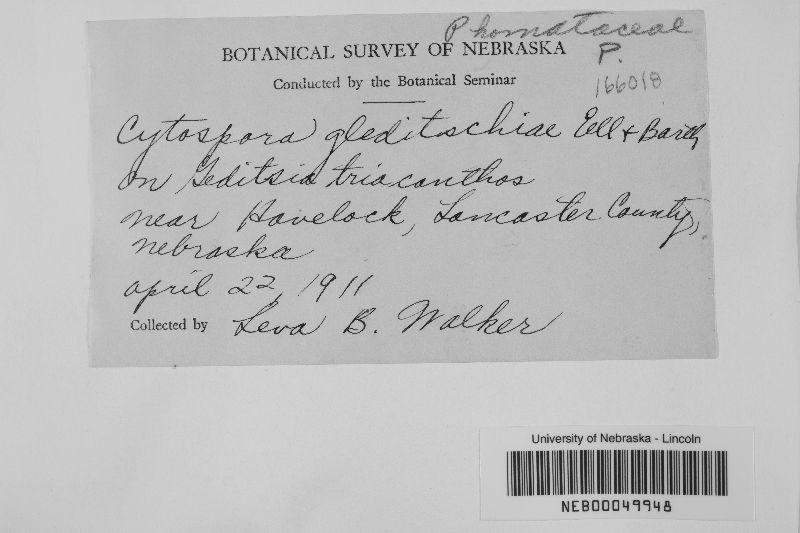 Phomataceae
BOTANICAL SURVEY OF NEBRASKA
P.
Conducted by the Botanical Seminar
166018
Cytospora gleditschiae Ell & Barth
on Gleditsia triacanthos
near Havelock, Lancaster County,
Nebraska
april 22, 1911
Collected by Leva B. Walker
University of Nebraska - Lincoln
NEB00049948